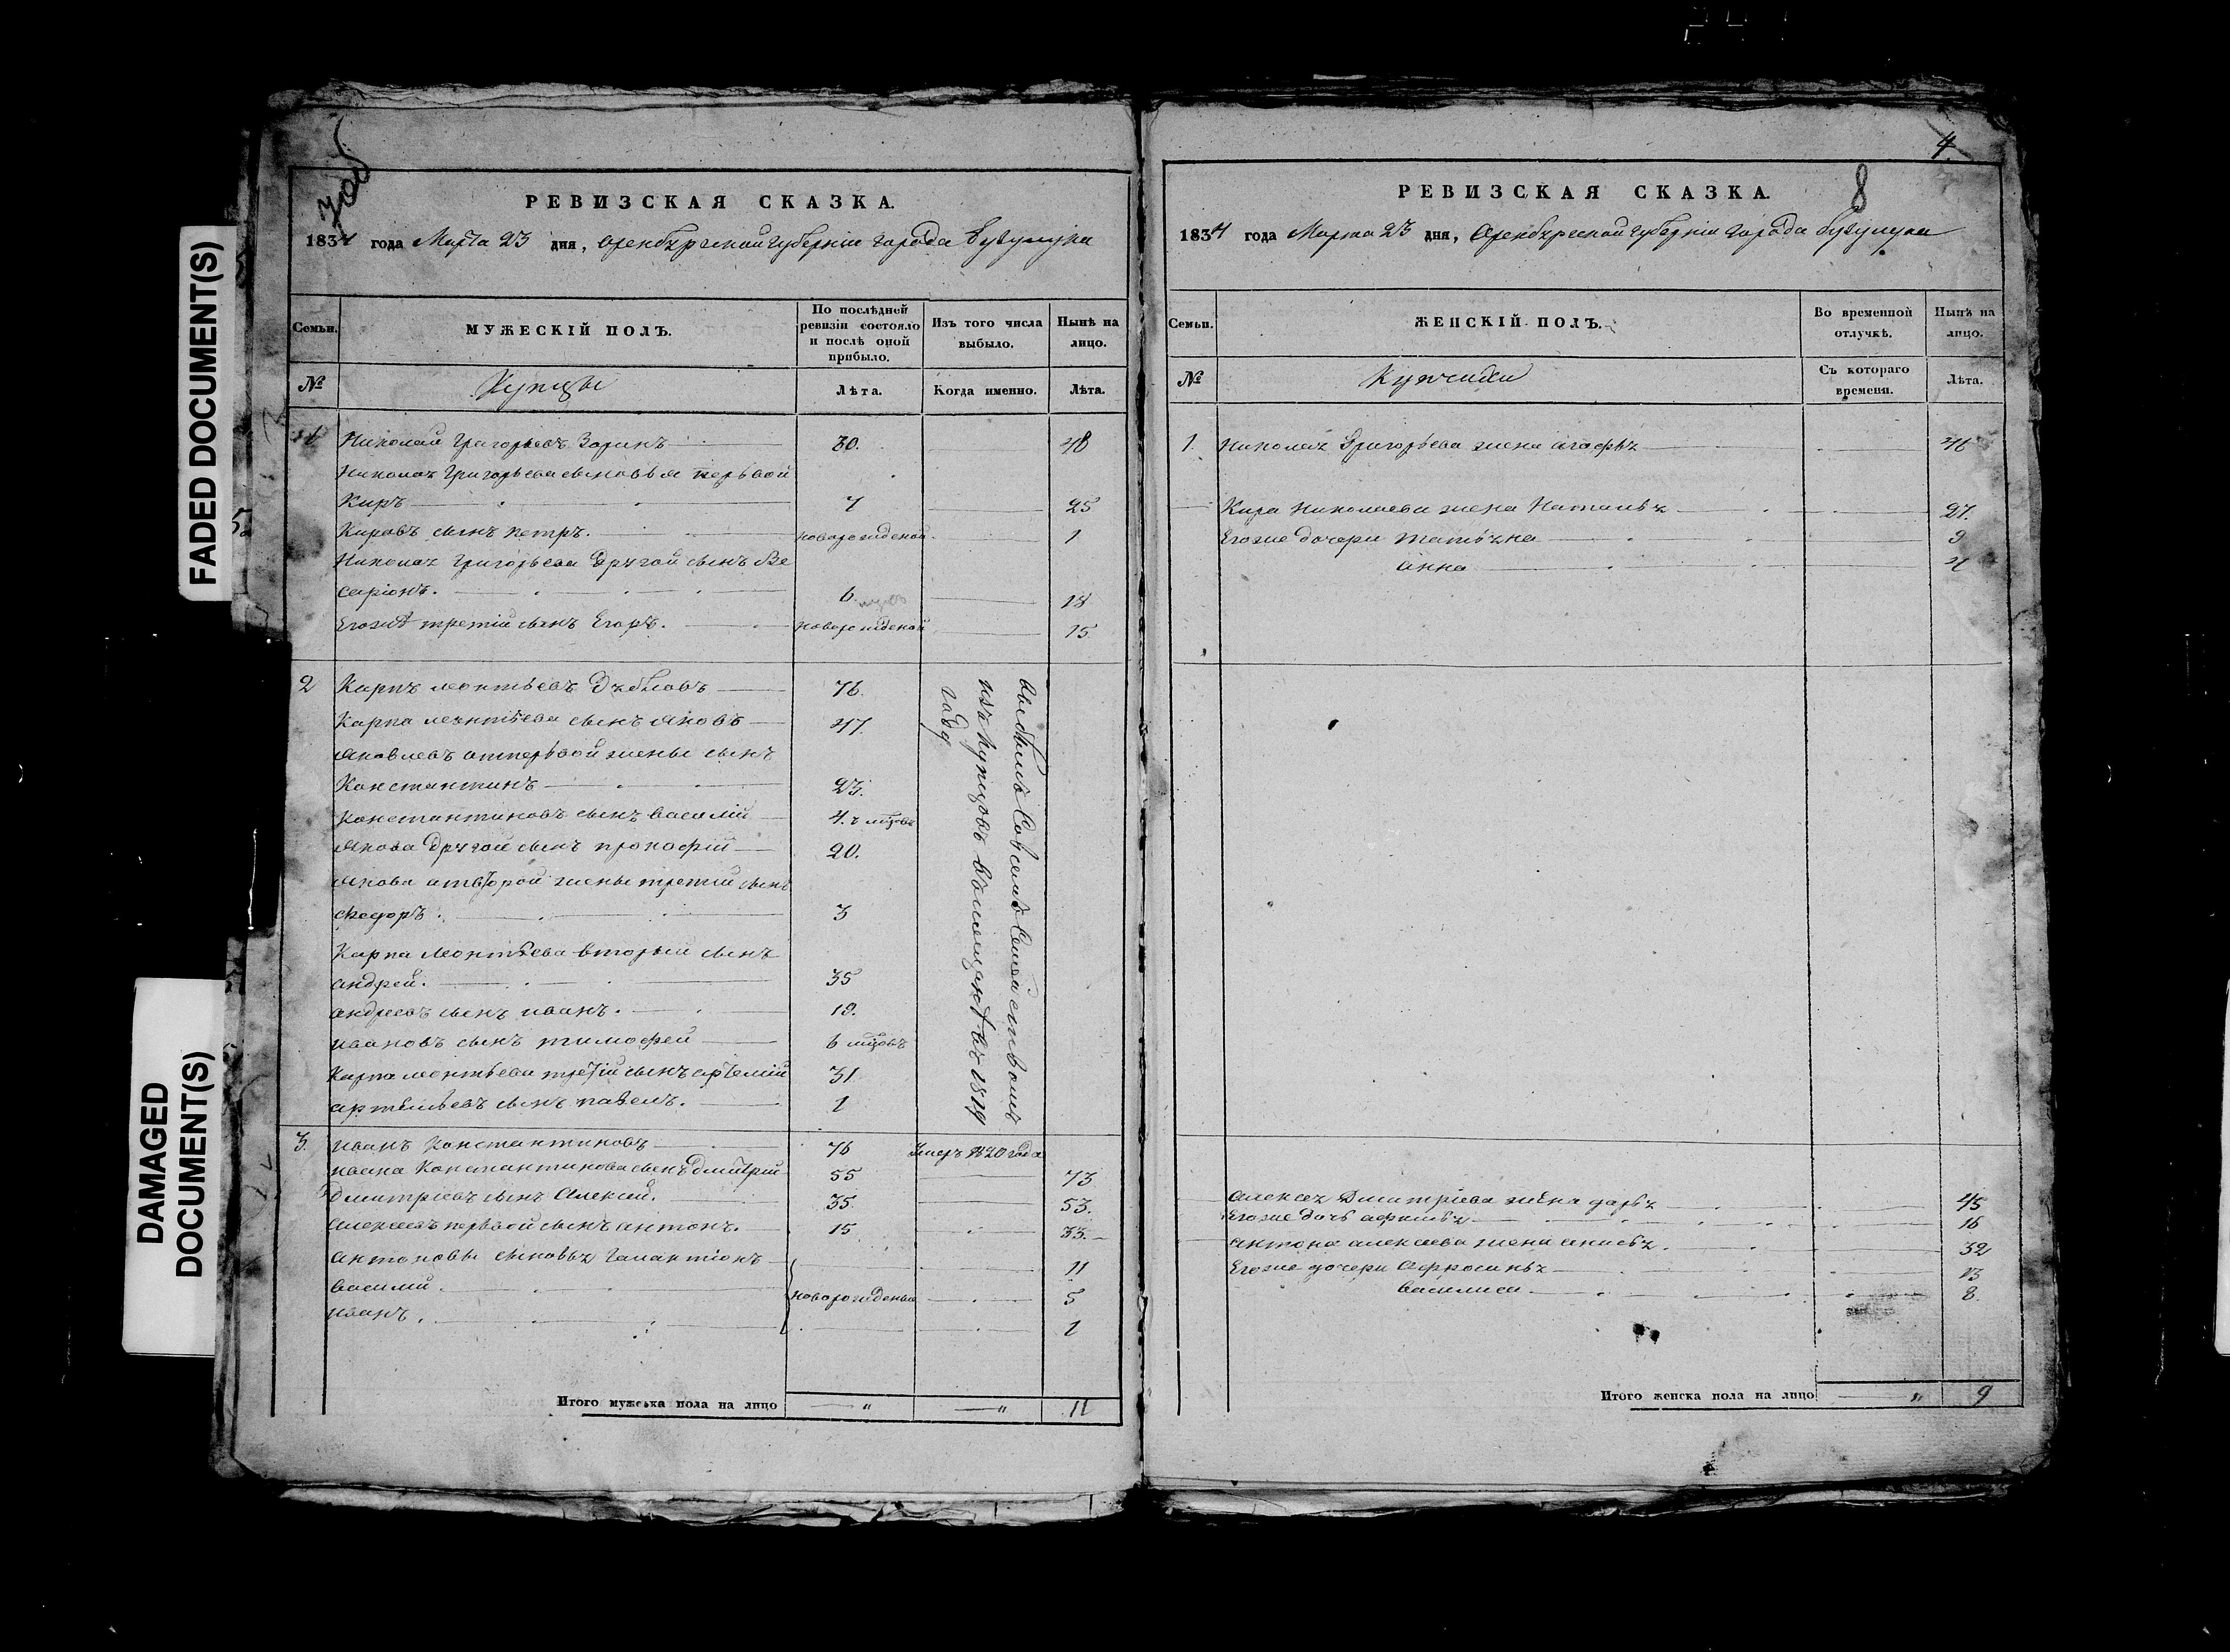 FADED DOCUMENT(S)
DAMAGED
DOCUMENT(S)
РЕВИЗСКАЯ СКАЗКА.
1834 года Марта 23 дня, Оренбургской губерніи города Бузулука
Семьи.
МУЖЕСКІЙ ПОЛЪ.
По послѣдней ревизіи состояло и послѣ оной прибыло.
Изъ того числа выбыло.
Нынѣ на лицо.
№
Купцы
Лѣта.
Когда именно.
Лѣта.
1 Николай Григорьевъ Зоринъ 30. 48
Николая Григорьева сыновья первой
Киръ 7 25
Кировъ сынъ петръ. новорожденой 1
Николая Григорьева Другой сынъ Ве
саріонъ. 6 18
Егожъ третій сынъ Егоръ. новорожденой 15
2 Карпъ леонтьевъ 76.
Карпа леонтьева сынъ яковъ 47.
яковлевъ отпервой жены сынъ
Константинъ 23.
Константиновъ сынъ василій 4.
якова Другой сынъ прокофій 20.
якова отвторой жены третій сынъ
федоръ. 3
Карпа леонтьева вторый сынъ
андрей. 35
андреевъ сынъ иванъ. 19.
ивановъ сынъ тимофей 6 мцовъ
Карпа леонтьева третій сынъ артемій 31
артемьевъ сынъ павелъ. 1
выбылъ Совсемъ Семействомъ
изъ купцовъ въ мещане въ 1819
году
3. иванъ Константиновъ 76 Умеръ 1820 года
ивана Константинова сынъ дмитрій 55 73
дмитріевъ сынъ Алексей. 35. 53.
алексеевъ первой сынъ антонъ. 15 33.
антоновы сыновья галактіонъ 11
василій. новорожденые 5
иванъ. 1
Итого мужеска пола на лицо " " 11
4
8
РЕВИЗСКАЯ СКАЗКА.
1834 года Марта 23 дня, Оренбургской губерніи города бузулука
Семьи.
ЖЕНСКІЙ ПОЛЪ.
Во временной отлучкѣ.
Нынѣ на лицо.
№
Купчихи
Съ котораго времени.
Лѣта.
1. николая Григорьева жена агафья 46
Кира Николаева жена Наталья 27.
Егоже дочери татьяна 9
анна 4
алексея Дмитріева жена дарья 45
Егоже дочь афимья 16
антона алексеева жена анисья. 32
Егоже дочери Афросинья 13
василиса 8.
Итого женска пола на лицо " 9